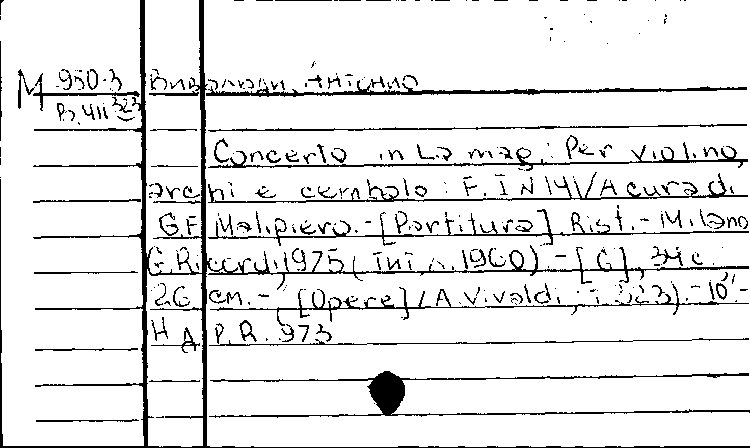 M 950.3 Вивалди, Антонио
В.411 323
Concerto in La mag.: Per violino,
archi e cembalo : F. I N 141 / A cura di
G.F. Malipiero. - [Partitura]. Rist. - Milano
G. Ricordi, 1975 ( 1960) - [6], 34 c.
26 cm. - [Opere] / A. Vivaldi ; T. 323). - 10" -
P.R. 973